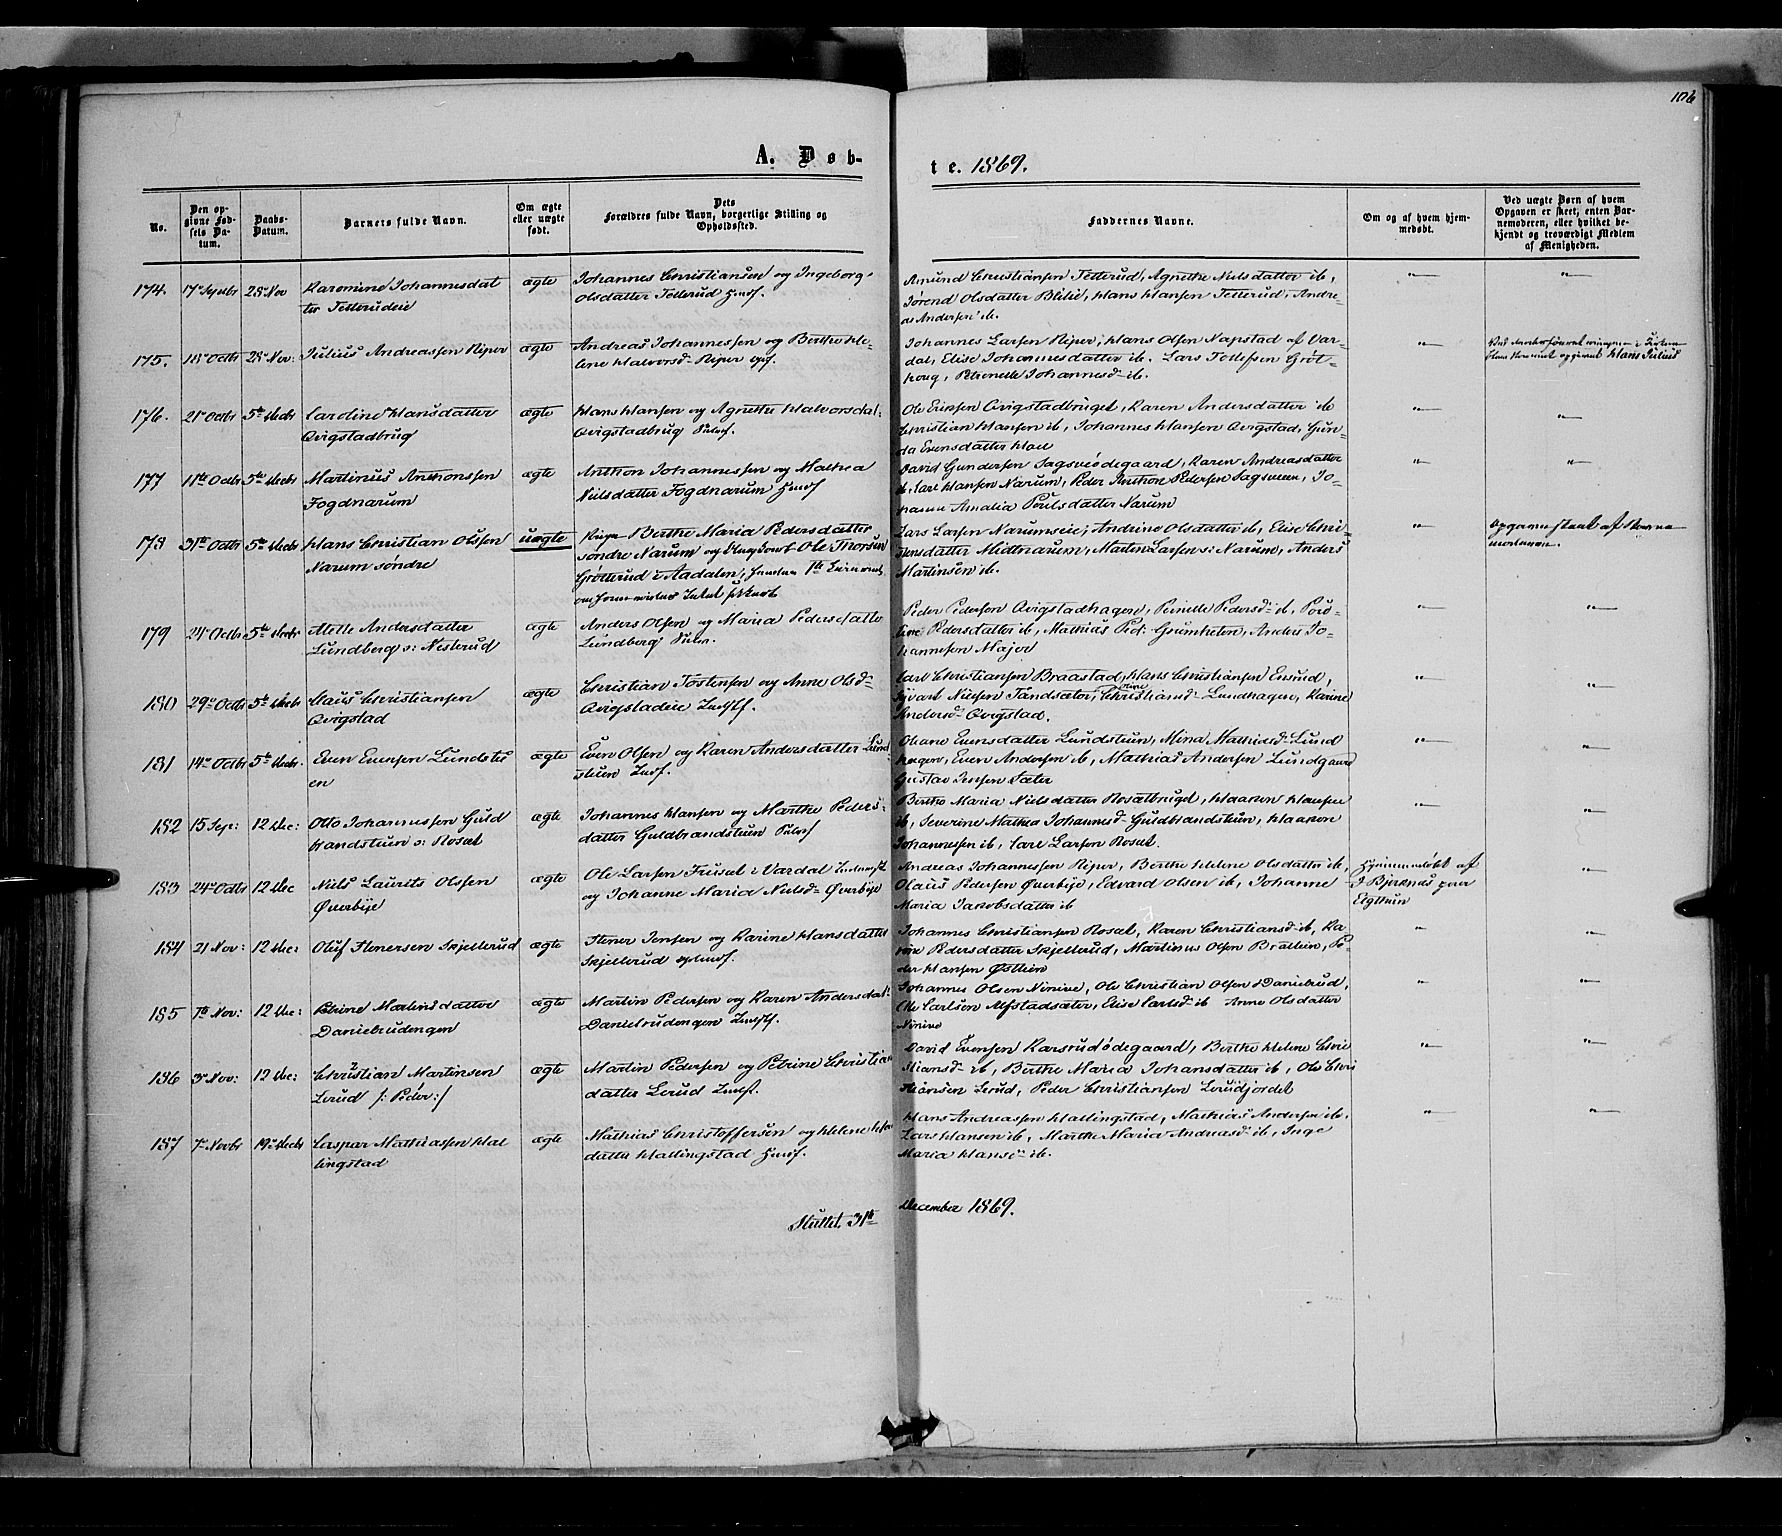 106
A. Døb-
te. 1869.
No.
Den op-
givne Fød-
sels Da-
tum.
Daabs-
Datum.
Barnets fulde Navn.
Om ægte
eller uægte
født.
Dets
Forældres fulde Navn, borgerlige Stilling og
Opholdssted.
Faddernes Navne.
Om og af hvem hjem-
medøbt.
Ved uægte Børn af hvem
Opgaven er skeet, enten Bar-
nemoderen, eller hvilket be-
kjendt og troværdigt Medlem
af Menigheden.
174. 28 Nov Karomine Johannesdat ægte Johannes Christiansen og Ingeborg
ter Tetterudeie Olsdatter Tetterud
Amund Christiansen Tetterud, Agnethe Nielsdatter ib,
Jørend Olsdatter Blilie, Hans Hansen Tetterud, Andre-
as Andersen ib.
175. 18 Octbr 28 Nov: Julius Andreassen Riper ægte Andreas Johannessen og Berthe He-
lene Halvorsd Riper
Johannes Larsen Riper, Hans Olsen Napstad af Var-
dal, Elise Johannesdatter ib. Lars Tollefsen Grøt-
houg, Petronelle Johannesd ib.
Hans Julius
176. 21 Octbr 5te Decbr Caroline Hansdatter ægte Hans Hansen og Agnethe Halvorsdat:
Qvigstadbrug Qvigstadbrug
Ole Eriksen Qvigstadbruget, Karen Andersdatter ib
Christian Hansen ib, Johannes Hansen Qvigstad, Gun-
da Evensdatter
177 11te Octbr 5te Decbr Martinus Anthonsen ægte Anthon Johannessen og Mathea
Fogdnarum Nielsdatter Fogdnarum
David Gundersen Sagsveødegaard, Karen Andreasdatter
ib, Carl Hansen Narum, Peder Anthon Pedersen Sagsveen, Jo-
hanna Amalia Poulsdatter Narum
178 31te Octbr 5te Decbr Hans Christian Olsen uægte Pige Berthe Maria Pedersdatter
Narum søndre søndre Narum og Ole Thorsen
Grøtterud i Aadalen,
Lars Larsen Narumseie, Andrine Olsdatter ib, Elise Chri-
stensdatter Midtnarum, Martin Larsen s: Narum, Anders
Martinsen ib.
179 24 Octbr 5te Decbr Mette Andersdatter ægte Anders Olsen og Maria Pedersdatter
Lundberg s: Nesterud Lundberg
Peder Pedersen Qvigstadhagen, Pernille Pedersd ib, Pou-
line Pedersdatter ib, Mathias Ped: Grimheten, Anders Jo-
hannesen Majer
180 29 Octbr 5te Decbr Claus Christiansen ægte Christian Tostensen og Anne Olsd
Qvigstad Qvigstadeie
Carl Christiansen Braastad, Hans Christiansen Enrud,
Syvart Nielsen Tandsæter, Christiansd Lundhagen, Karine
Andersd Qvigstad.
181 14 Octbr 5te Decbr. Even Evensen Lundstu ægte Even Olsen og Karen Andersdatter Lund
en stuen
Oliane Evensdatter Lundstuen, Mina Mathiasd Lund
hagen, Even Andersen ib, Mathias Andersen Lundgaard
Gustav Jensen Sæter
182 15 Sep: 12 Dec: Otto Johannessen Guld ægte Johannes Hansen og Marthe Peders-
brandstuen s: Roset datter Guldbrandstuen
Berthe Maria Nielsdatter Rosetbruget, Haaken Hansen
ib, Severine Mathea Johannesd Guldbrandstuen, Haaken
Johannesen ib, Carl Larsen Roset.
183 24 Octbr 12 Dec Niels Laurits Olsen ægte Ole Larsen i Vardal
Øverbye og Johanne Maria Nielsd Øverbye
Andreas Johannessen Riper, Berthe Helene Olsdatter ib,
Olaus Pedersen Øverbye, Edvard Olsen ib, Johanne
Maria Jakobsdatter ib
Hjemmedøbt af
J Bjerknes paa
184 21 Nov: 12 Dec: Oluf Stenersen Skjellerud ægte Stener Jensen og Karine Hansdatter
Skjellerud
Johannes Christiansen Roset, Karen Christiansd ib, Ka-
rine Pedersdatter Skjellerud, Martinus Olsen Brattlien, Pe-
der Hansen Østlien
185 Nov: 12 Dec: Petrine Martinsdatter ægte Martin Pedersen og Karen Andersdat:
Danielrudengen Danielrudengen
Johannes Olsen Ninive, Ole Christian Olsen Danielrud,
Ole Carlsen Alfstadsæter, Elise Carlsd ib Anne Olsdatter
Ninive
186 3 Nov: 12 Dec: Christian Martinsen ægte Martin Pedersen og Petrine Christian
Lerud /: Peder :/ datter Lerud
David Evensen Karsrudødegaard, Berthe Helene Chri
stiansd ib, Berthe Maria Johansdatter ib, Ole Chri
stiansen Lerud, Peder Christiansen Lerudjordet
187 7 Novbr 19 Decbr Caspar Mathiassen Hal ægte Mathias Christoffersen og Helene
lingstad datter Hallingstad
Hans Andreassen Hallingstad, Mathias Andersen ib,
Lars Hansen ib, Marthe Maria Andreasd ib, Inge
Maria Hansd ib.
Sluttet 31te
December 1869.